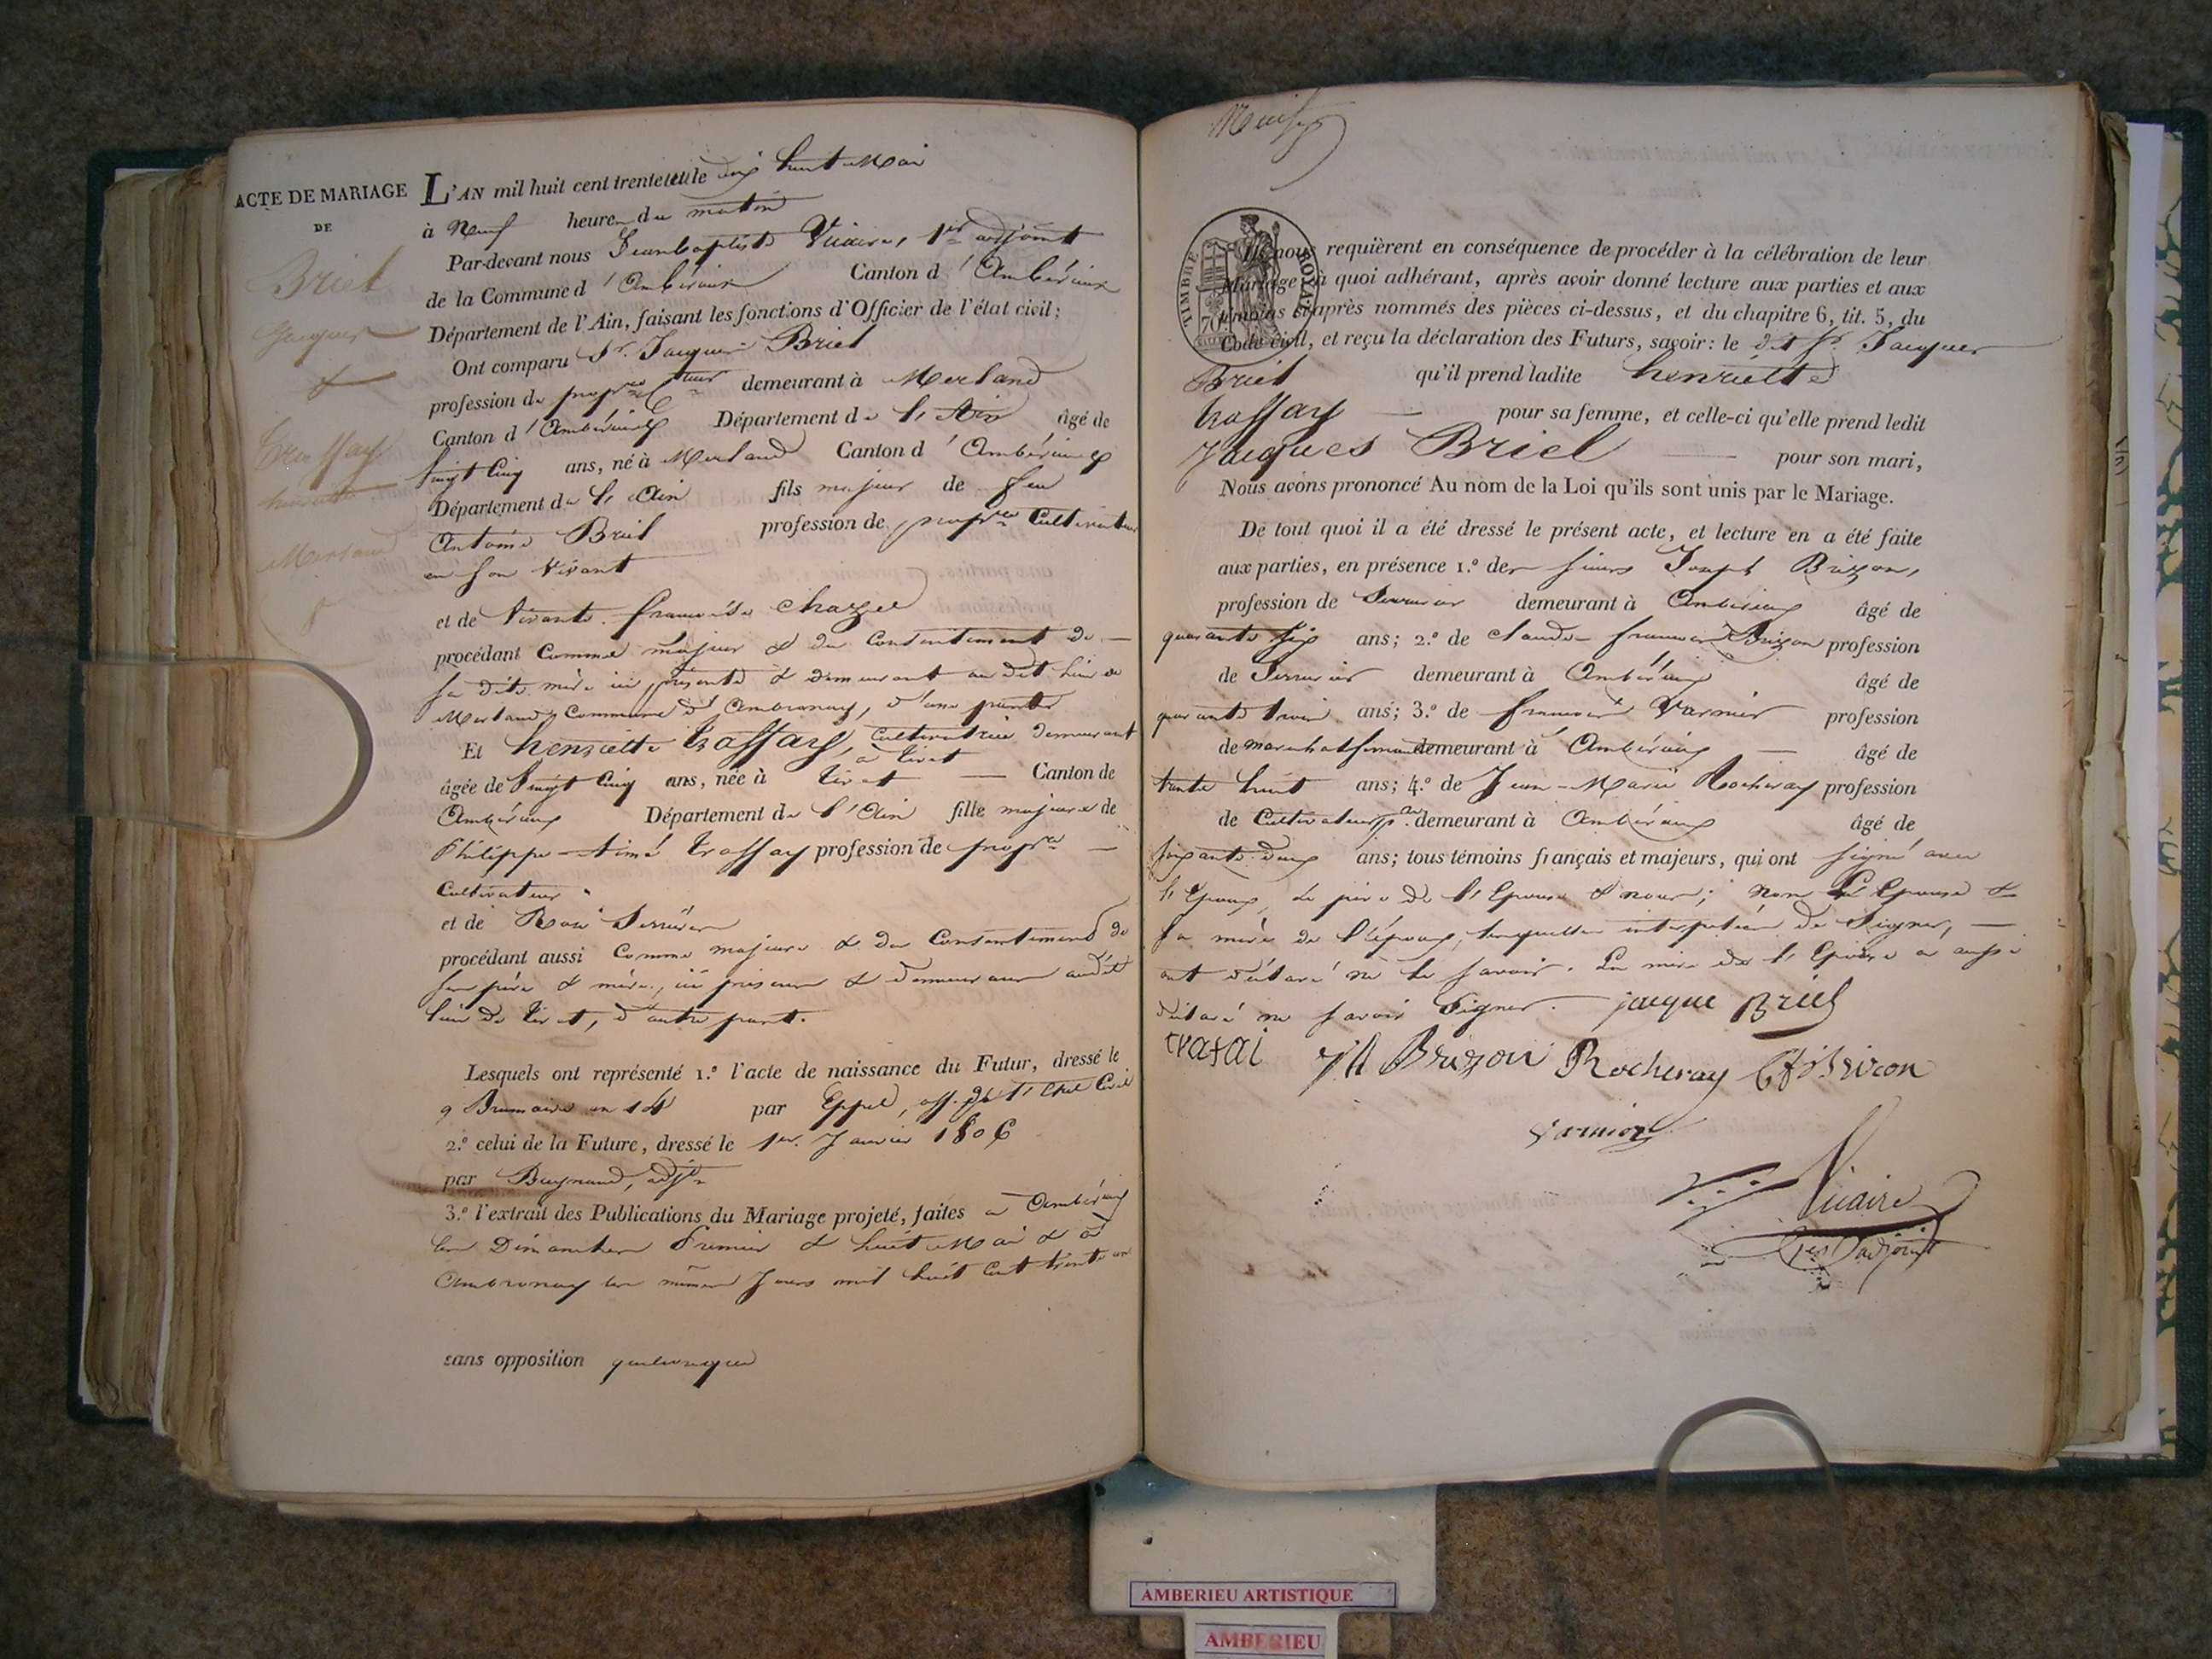 ACTE DE MARIAGE
DE
Briel
Jacques
&
Traffay
henriette
Merland
8
L'AN mil huit cent trente et un le dix huit Mai
à Neuf heures du matin
Par-devant nous Jeanbaptiste Vicaire, 1er adjoint
de la Commune d'Ambérieux Canton d'Ambérieux
Département de l'Ain, faisant les fonctions d'Officier de l'état civil;
Ont comparu Sr. Jacques Briel
profession de propre demeurant à Merland
Canton d'Ambérieux Département de l'Ain âgé de
vingt Cinq ans, né à Merland Canton d'Ambérieux
Département de l'Ain fils majeur de feu
Antoine Briel profession de propre Cultivateur
en son vivant
et de vivante françoise Chazel
procédant Comme majeur & du Consentement de
sa dite mère ici présente & demeurant au dit lieu de
Merland, Commune d'Ambronay, d'une part
Et henriette Traffay, Cultivatrice demeurant
à Tiret
âgée de Vingt Cinq ans, née à Tiret Canton de
Ambérieux Département de l'Ain fille majeure de
Philippe-Aimé Traffay profession de propre
Cultivateur
et de Rose Serrurier
procédant aussi Comme majeure & du Consentement de
ses père & mère, ici présens & demeurans audit
lieu de Tiret, d'autre part.
Lesquels ont représenté 1.º l'acte de naissance du Futur, dressé le
9 Brumaire an 14 par Eppel, off. de l'état Civil
2.º celui de la Future, dressé le 1er. Janvier 1806
par Buynand, adjt
3.º l'extrait des Publications du Mariage projeté, faites à Ambérieux
les Dimanches Premier & huit Mai & à
Ambronay les mêmes Jours mil huit Cent trente un
sans opposition quelconque
TIMBRE ROYAL
70
Ils nous requièrent en conséquence de procéder à la célébration de leur
Mariage; à quoi adhérant, après avoir donné lecture aux parties et aux
témoins ci-après nommés des pièces ci-dessus, et du chapitre 6, tit. 5, du
Code civil, et reçu la déclaration des Futurs, savoir: le dit Sr. Jacques
Briel qu'il prend ladite henriette
Traffay pour sa femme, et celle-ci qu'elle prend ledit
Jacques Briel pour son mari,
Nous avons prononcé Au nom de la Loi qu'ils sont unis par le Mariage.
De tout quoi il a été dressé le présent acte, et lecture en a été faite
aux parties, en présence 1.º des sieurs Joseph Brizon,
profession de Serrurier demeurant à Ambérieux âgé de
quarante six ans; 2.º de Claude françois Brizon profession
de Serrurier demeurant à Ambérieux âgé de
quarante trois ans; 3.º de françois Varnier profession
de marechal ferrant demeurant à Ambérieux âgé de
trente huit ans; 4.º de Jean-Marie Rocheray profession
de Cultivateur demeurant à Ambérieux âgé de
soixante-deux ans; tous témoins français et majeurs, qui ont signé avec
l'Epoux, le père de l'Epouse & nous; non l'Epouse &
la mère de l'époux, lesquelles interpelées de Signer,
ont déclaré ne le savoir. La mère de l'Epouse a aussi
déclaré ne savoir Signer. jacque Briel
trafai JH Brizon Rocheray
varnier
Vicaire
1er adjoint
AMBERIEU ARTISTIQUE
AMBERIEU